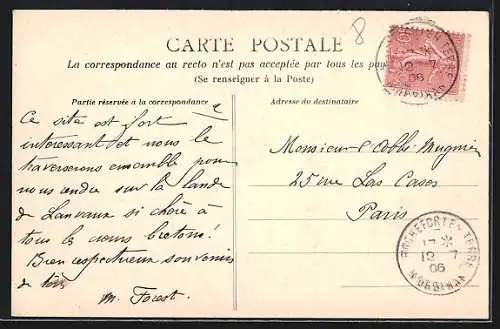 8
CARTE POSTALE
La correspondance au recto n'est pas acceptée par tous les pays
(Se renseigner à la Poste)
Partie réservée à la correspondance
Adresse du destinataire
Ce site est fort
intéressant et nous le
traverserons ensemble pour
nous rendre sur la lande
de Lanvaux si chère à
tous les cœurs bretons!
Bien respectueux souvenirs
de tous
M. Forest.
Monsieur l'Abbé Mugnier
25 rue Las Cases
Paris
ROCHEFORT EN TERRE
12 - 7
06
MORBIHAN